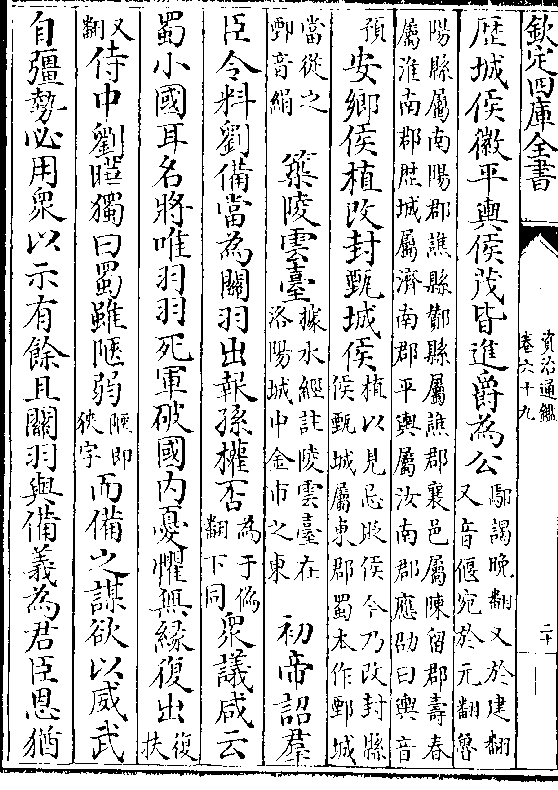 欽定四庫全書
資治通鑑
卷六十九
二十
歴城侯徽平輿侯茂皆進爵為公
鄢謁晚翻又於建翻
又音偃宛於元翻魯
陽縣屬南陽郡譙縣酇縣屬譙郡襄邑屬陳留郡壽春
屬淮南郡歴城屬濟南郡平輿屬汝南郡應劭曰輿音
預
安鄉侯植改封甄城侯
植以見忌貶侯今乃改封縣
侯甄城屬東郡蜀本作鄄城
當從之
鄄音絹
築陵雲臺
據水經註陵雲臺在
洛陽城中金市之東
初帝詔羣
臣令料劉備當為關羽出報孫權否
為于偽
翻下同
衆議咸云
蜀小國耳名將唯羽羽死軍破國内憂懼無縁復出
復扶
又
翻
侍中劉曄獨曰蜀雖陿弱
陿即
狹字
而備之謀欲以威武
自彊勢必用衆以示有餘且關羽與備義為君臣恩猶